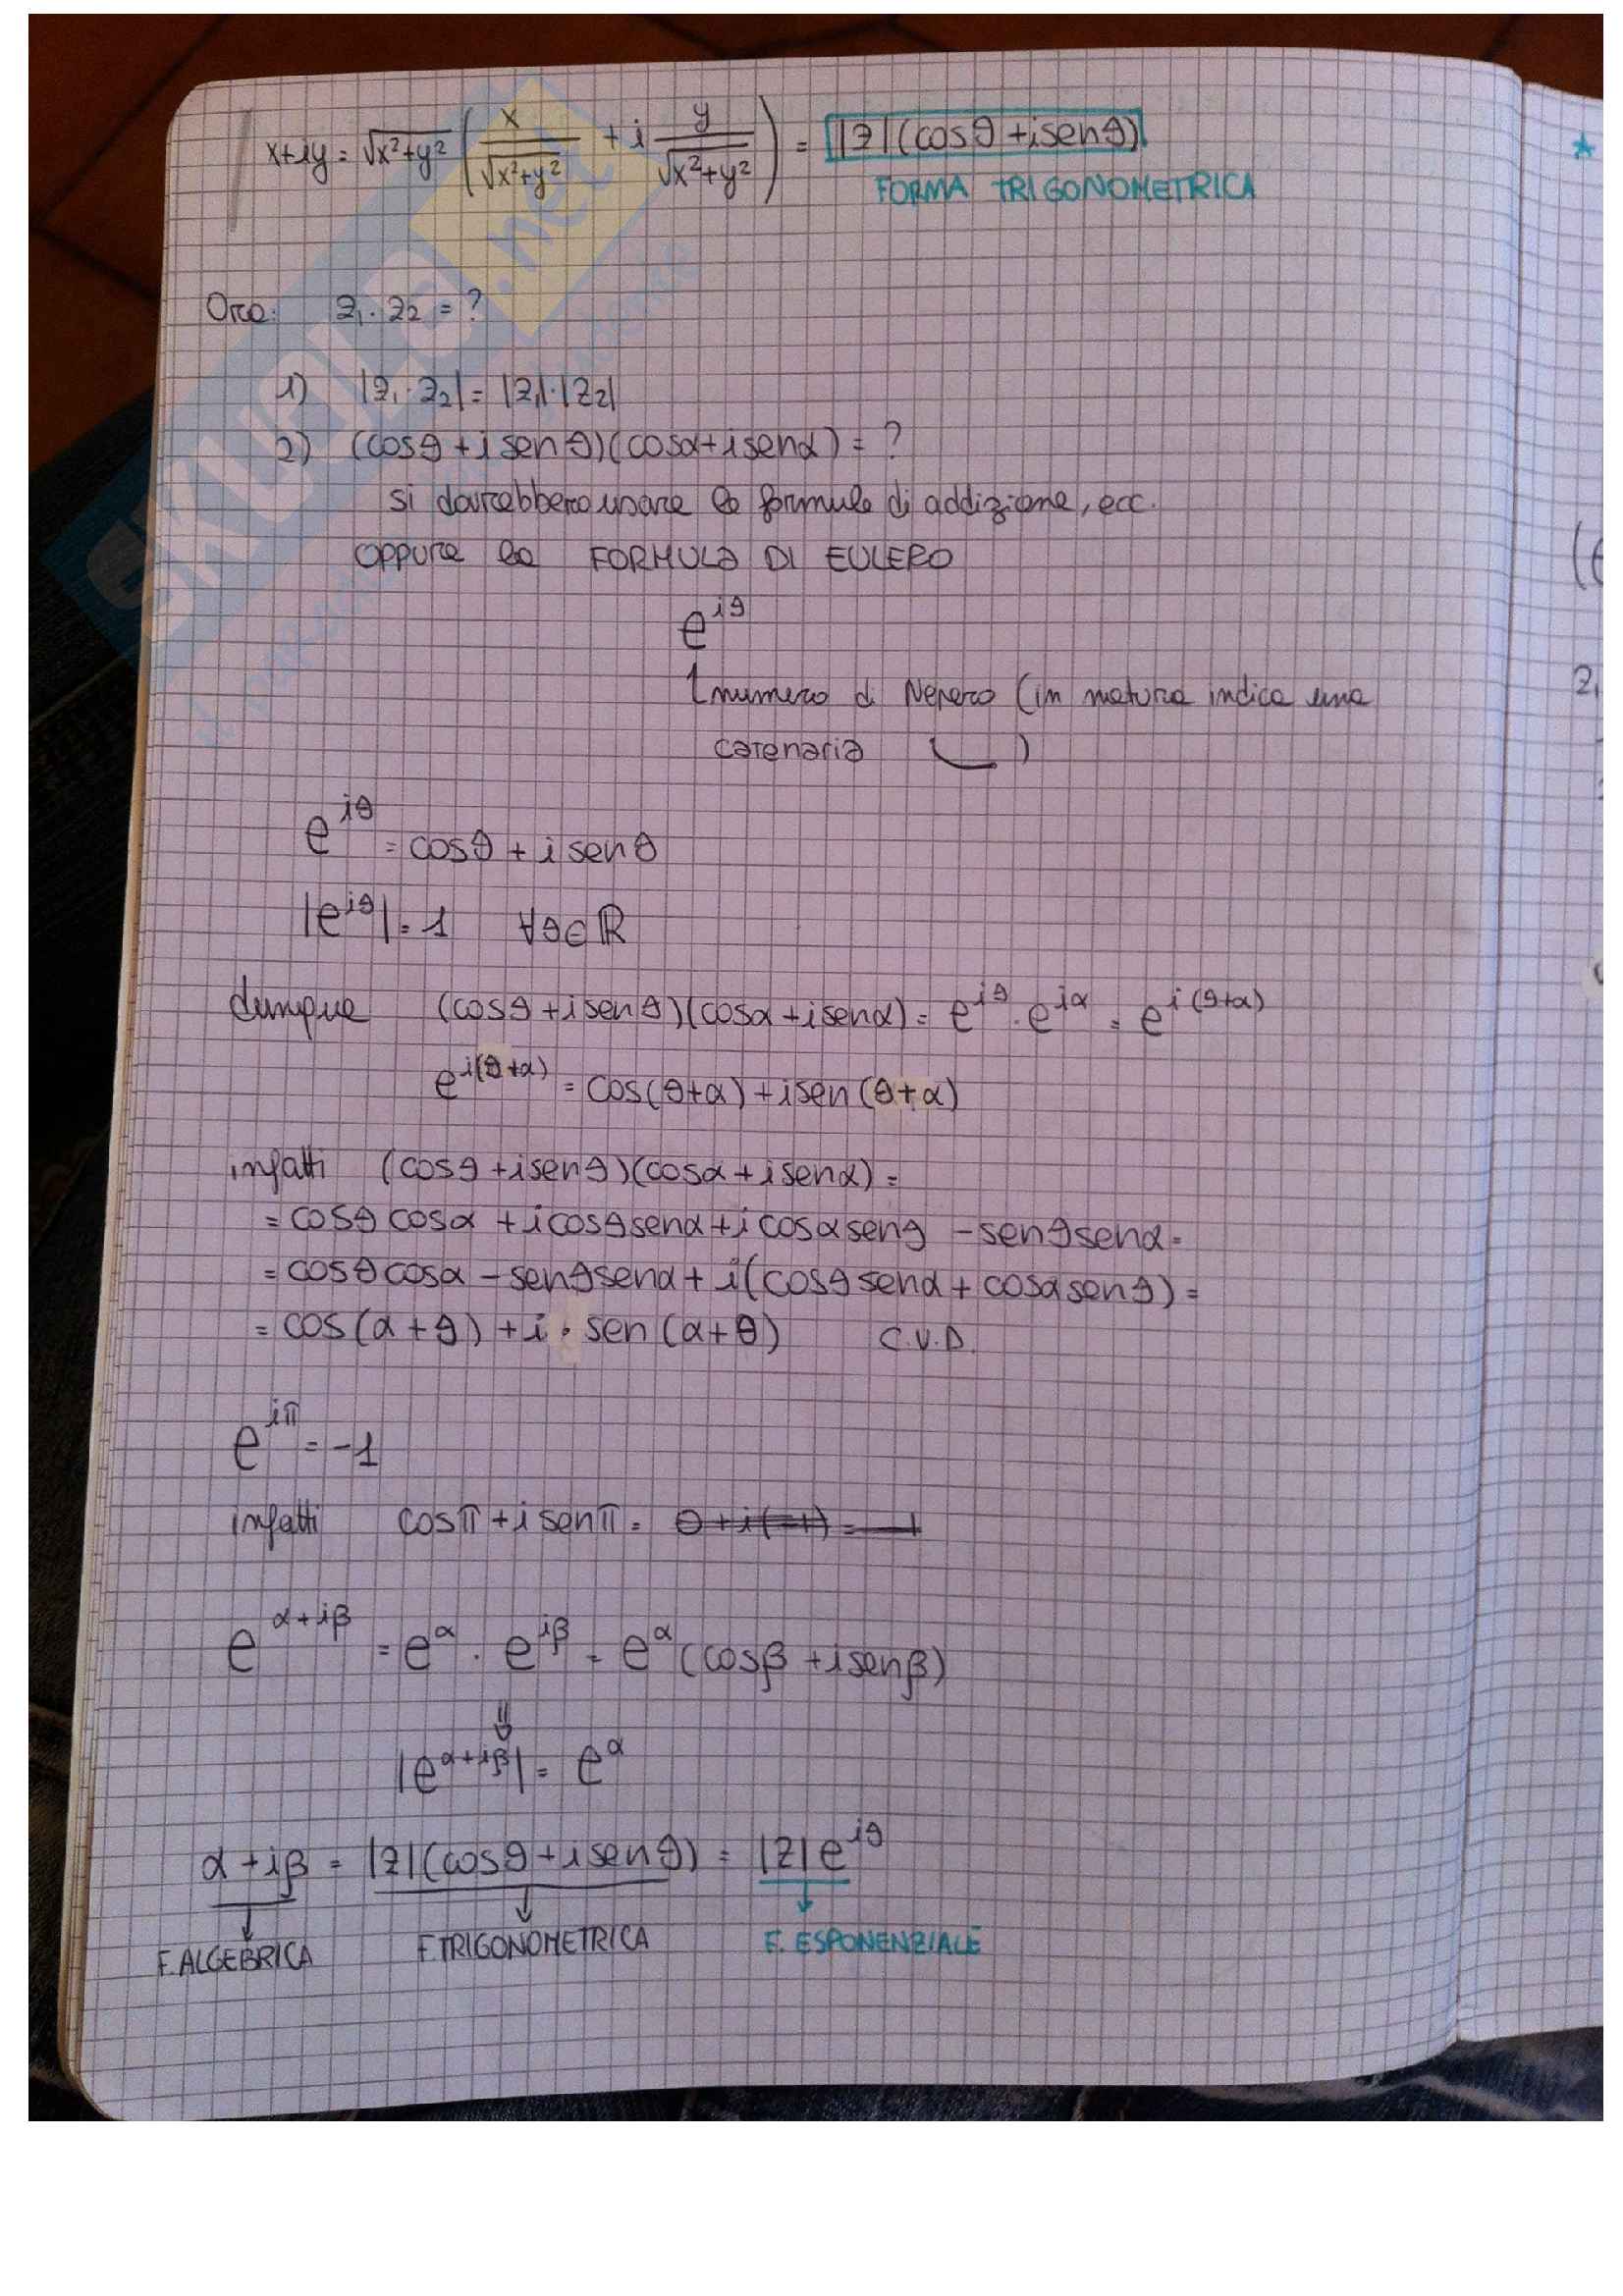 x+iy = √x²+y² ( x/√x²+y² + i y/√x²+y² ) = |z|(cosϑ + i senϑ)
FORMA TRIGONOMETRICA
Ora: z₁·z₂ = ?
1) |z₁·z₂| = |z₁|·|z₂|
2) (cosϑ + i senϑ)(cosα + i senα) = ?
si dovrebbero usare le formule di addizione, ecc.
oppure la FORMULA DI EULERO
e^{iϑ}
numero di Nepero (in natura indica una
catenaria )
e^{iϑ} = cosϑ + i senϑ
|e^{iϑ}| = 1 ∀ϑ∈ℝ
dunque (cosϑ + i senϑ)(cosα + i senα) = e^{iϑ}·e^{iα} = e^{i(ϑ+α)}
e^{i(ϑ+α)} = cos(ϑ+α) + i sen(ϑ+α)
infatti (cosϑ + i senϑ)(cosα + i senα) =
= cosϑ cosα + i cosϑ senα + i cosα senϑ - senϑ senα =
= cosϑ cosα - senϑ senα + i(cosϑ senα + cosα senϑ) =
= cos(α+ϑ) + i · sen(α+ϑ) C.V.D.
e^{iπ} = -1
infatti cosπ + i senπ = 0 + i(-1) = -1
e^{α+iβ} = e^α · e^{iβ} = e^α (cosβ + i senβ)
⇓
|e^{α+iβ}| = e^α
α+iβ = |z|(cosϑ + i senϑ) = |z|e^{iϑ}
F. ALGEBRICA F. TRIGONOMETRICA F. ESPONENZIALE